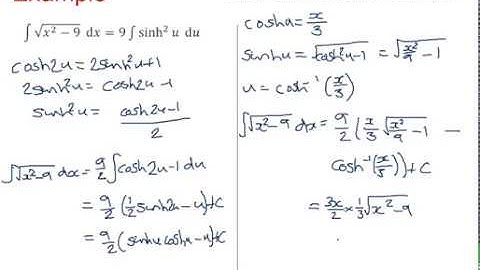 Example
∫√(x² − 9) dx = 9 ∫ sinh² u du
cosh2u = 2sinh²u+1
2sinh²u = cosh2u −1
sinh²u = (cosh2u−1)/2
∫√(x²−9) dx = 9/2 ∫cosh2u−1 du
= 9/2 (1/2 sinh2u − u)+C
= 9/2 (sinhu coshu − u)+C
coshu = x/3
sinhu = √(cosh²u−1) = √(x²/9 −1)
u = cosh⁻¹(x/3)
∫√(x²−9) dx = 9/2 (x/3 √(x²/9 −1) −
cosh⁻¹(x/3))+C
= 3x/2 × 1/3 √(x²−9)